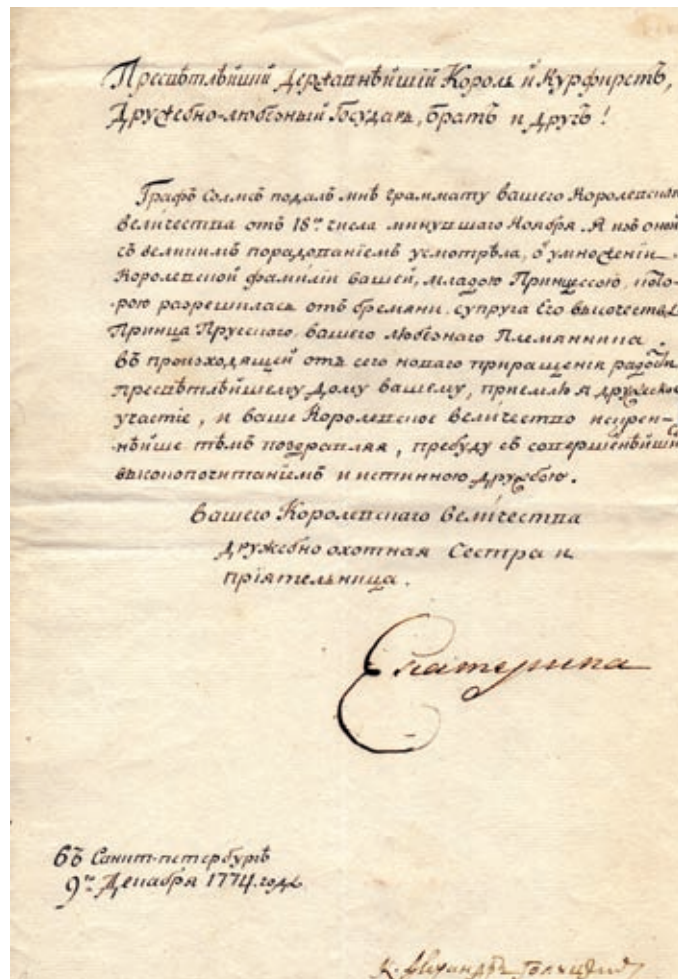 Пресвѣтлѣйшій Державнѣйшій Король и Курфирстъ,
Дружебно-любезный Государь, братъ и другъ!
Графъ Солмсъ подалъ мнѣ грамматy вашего Королевскаго
величества отъ 18го числа минувшаго Ноября. Я изъ оной
съ великимъ порадованіемъ усмотрѣла, о умноженіи
Королевской фамиліи вашей, младою Принцессою, кото-
-рою разрешилась отъ бремяни супруга Его высочества
Принца Прусскаго, вашего любезнаго Племянника.
въ происходящей отъ сего новаго приращенія радости
пресвѣтлѣйшему дому вашему, приемлю я дружеское
участіе, и ваше Королевское величество искрен-
-нѣйше тѣмъ поздравляя, пребуду съ совершеннѣйшимъ
высокопочитаніемъ и истинною дружбою.
вашего Королевскаго величества
дружебно охотная Сестра и
пріятельница.
Екатерина
въ Санкт-петербургѣ
9го Декабря 1774. года
К. Александръ Голицынъ